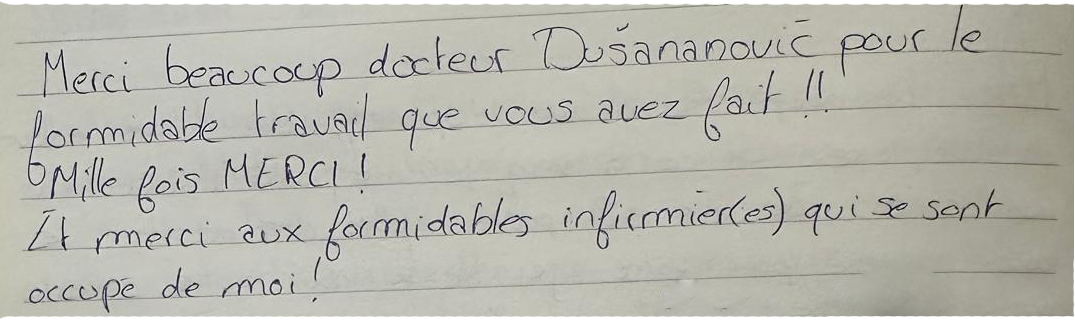 Merci beaucoup docteur Dušananovič pour le
formidable travail que vous avez fait !!
Mille fois MERCI !
Et merci aux formidables infirmier(es) qui se sont
occupé de moi !